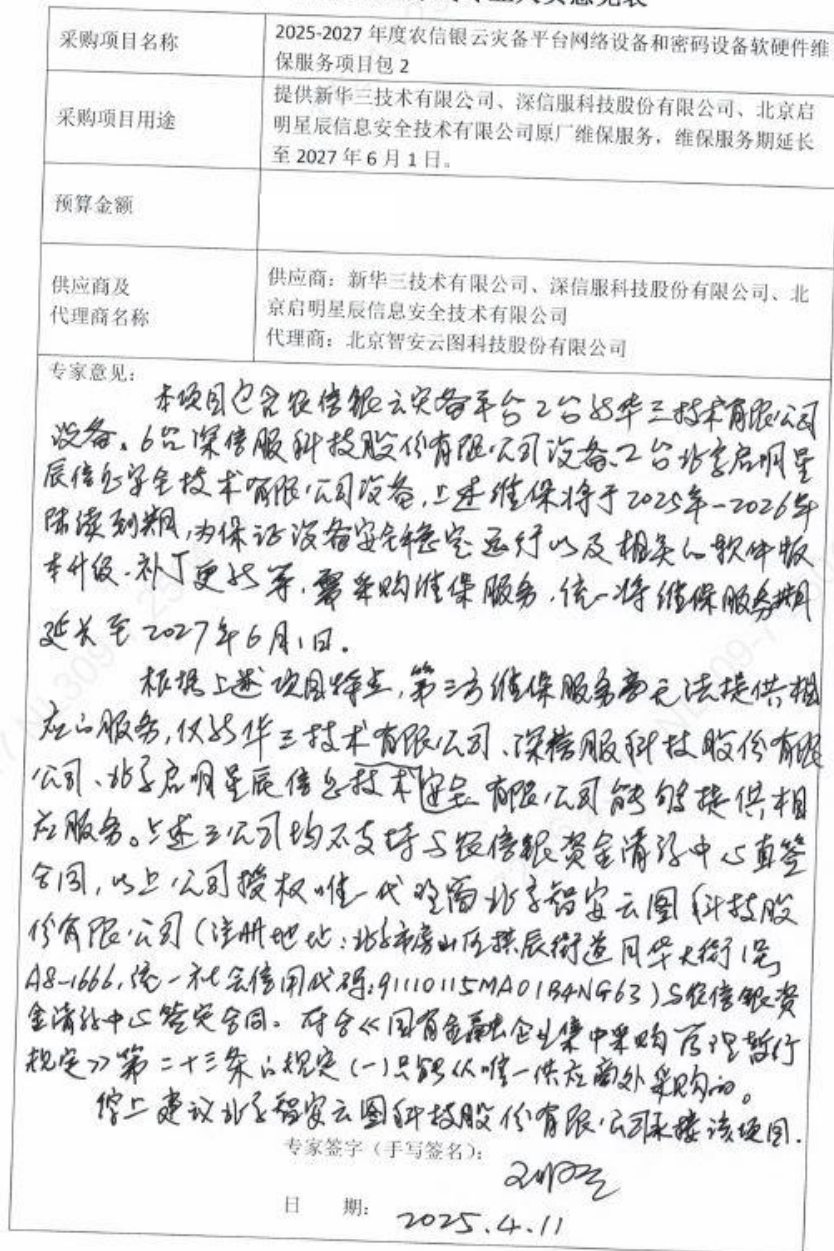 采购项目名称
2025-2027 年度农信银云灾备平台网络设备和密码设备软硬件维
保服务项目包 2
采购项目用途
提供新华三技术有限公司、深信服科技股份有限公司、北京启
明星辰信息安全技术有限公司原厂维保服务，维保服务期延长
至 2027 年 6 月 1 日。
预算金额
供应商及
代理商名称
供应商：新华三技术有限公司、深信服科技股份有限公司、北
京启明星辰信息安全技术有限公司
代理商：北京智安云图科技股份有限公司
专家意见：
本项目包含农信银云灾备平台2台新华三技术有限公司
设备、6台深信服科技股份有限公司设备、2台北京启明星
辰信息安全技术有限公司设备,上述维保将于2025年-2026年
陆续到期,为保证设备安全稳定运行以及相关的软件版
本升级、补丁更新等,需采购维保服务,统一将维保服务期
延长至2027年6月1日。
根据上述项目特点,第三方维保服务商无法提供相
应的服务,仅新华三技术有限公司、深信服科技股份有限
公司、北京启明星辰信息技术安全有限公司能够提供相
应服务。上述三公司均不支持与农信银资金清算中心直签
合同,以上公司授权唯一代理商北京智安云图科技股
份有限公司(注册地址:北京市房山区拱辰街道月华大街1号
A8-1666,统一社会信用代码:91110115MA01B4NG63)与农信银资
金清算中心签定合同。符合《国有金融企业集中采购管理暂行
规定》第二十三条的规定(一)只能从唯一供应商处采购的。
综上建议北京智安云图科技股份有限公司承接该项目.
专家签字（手写签名）：
日 期：2025.4.11